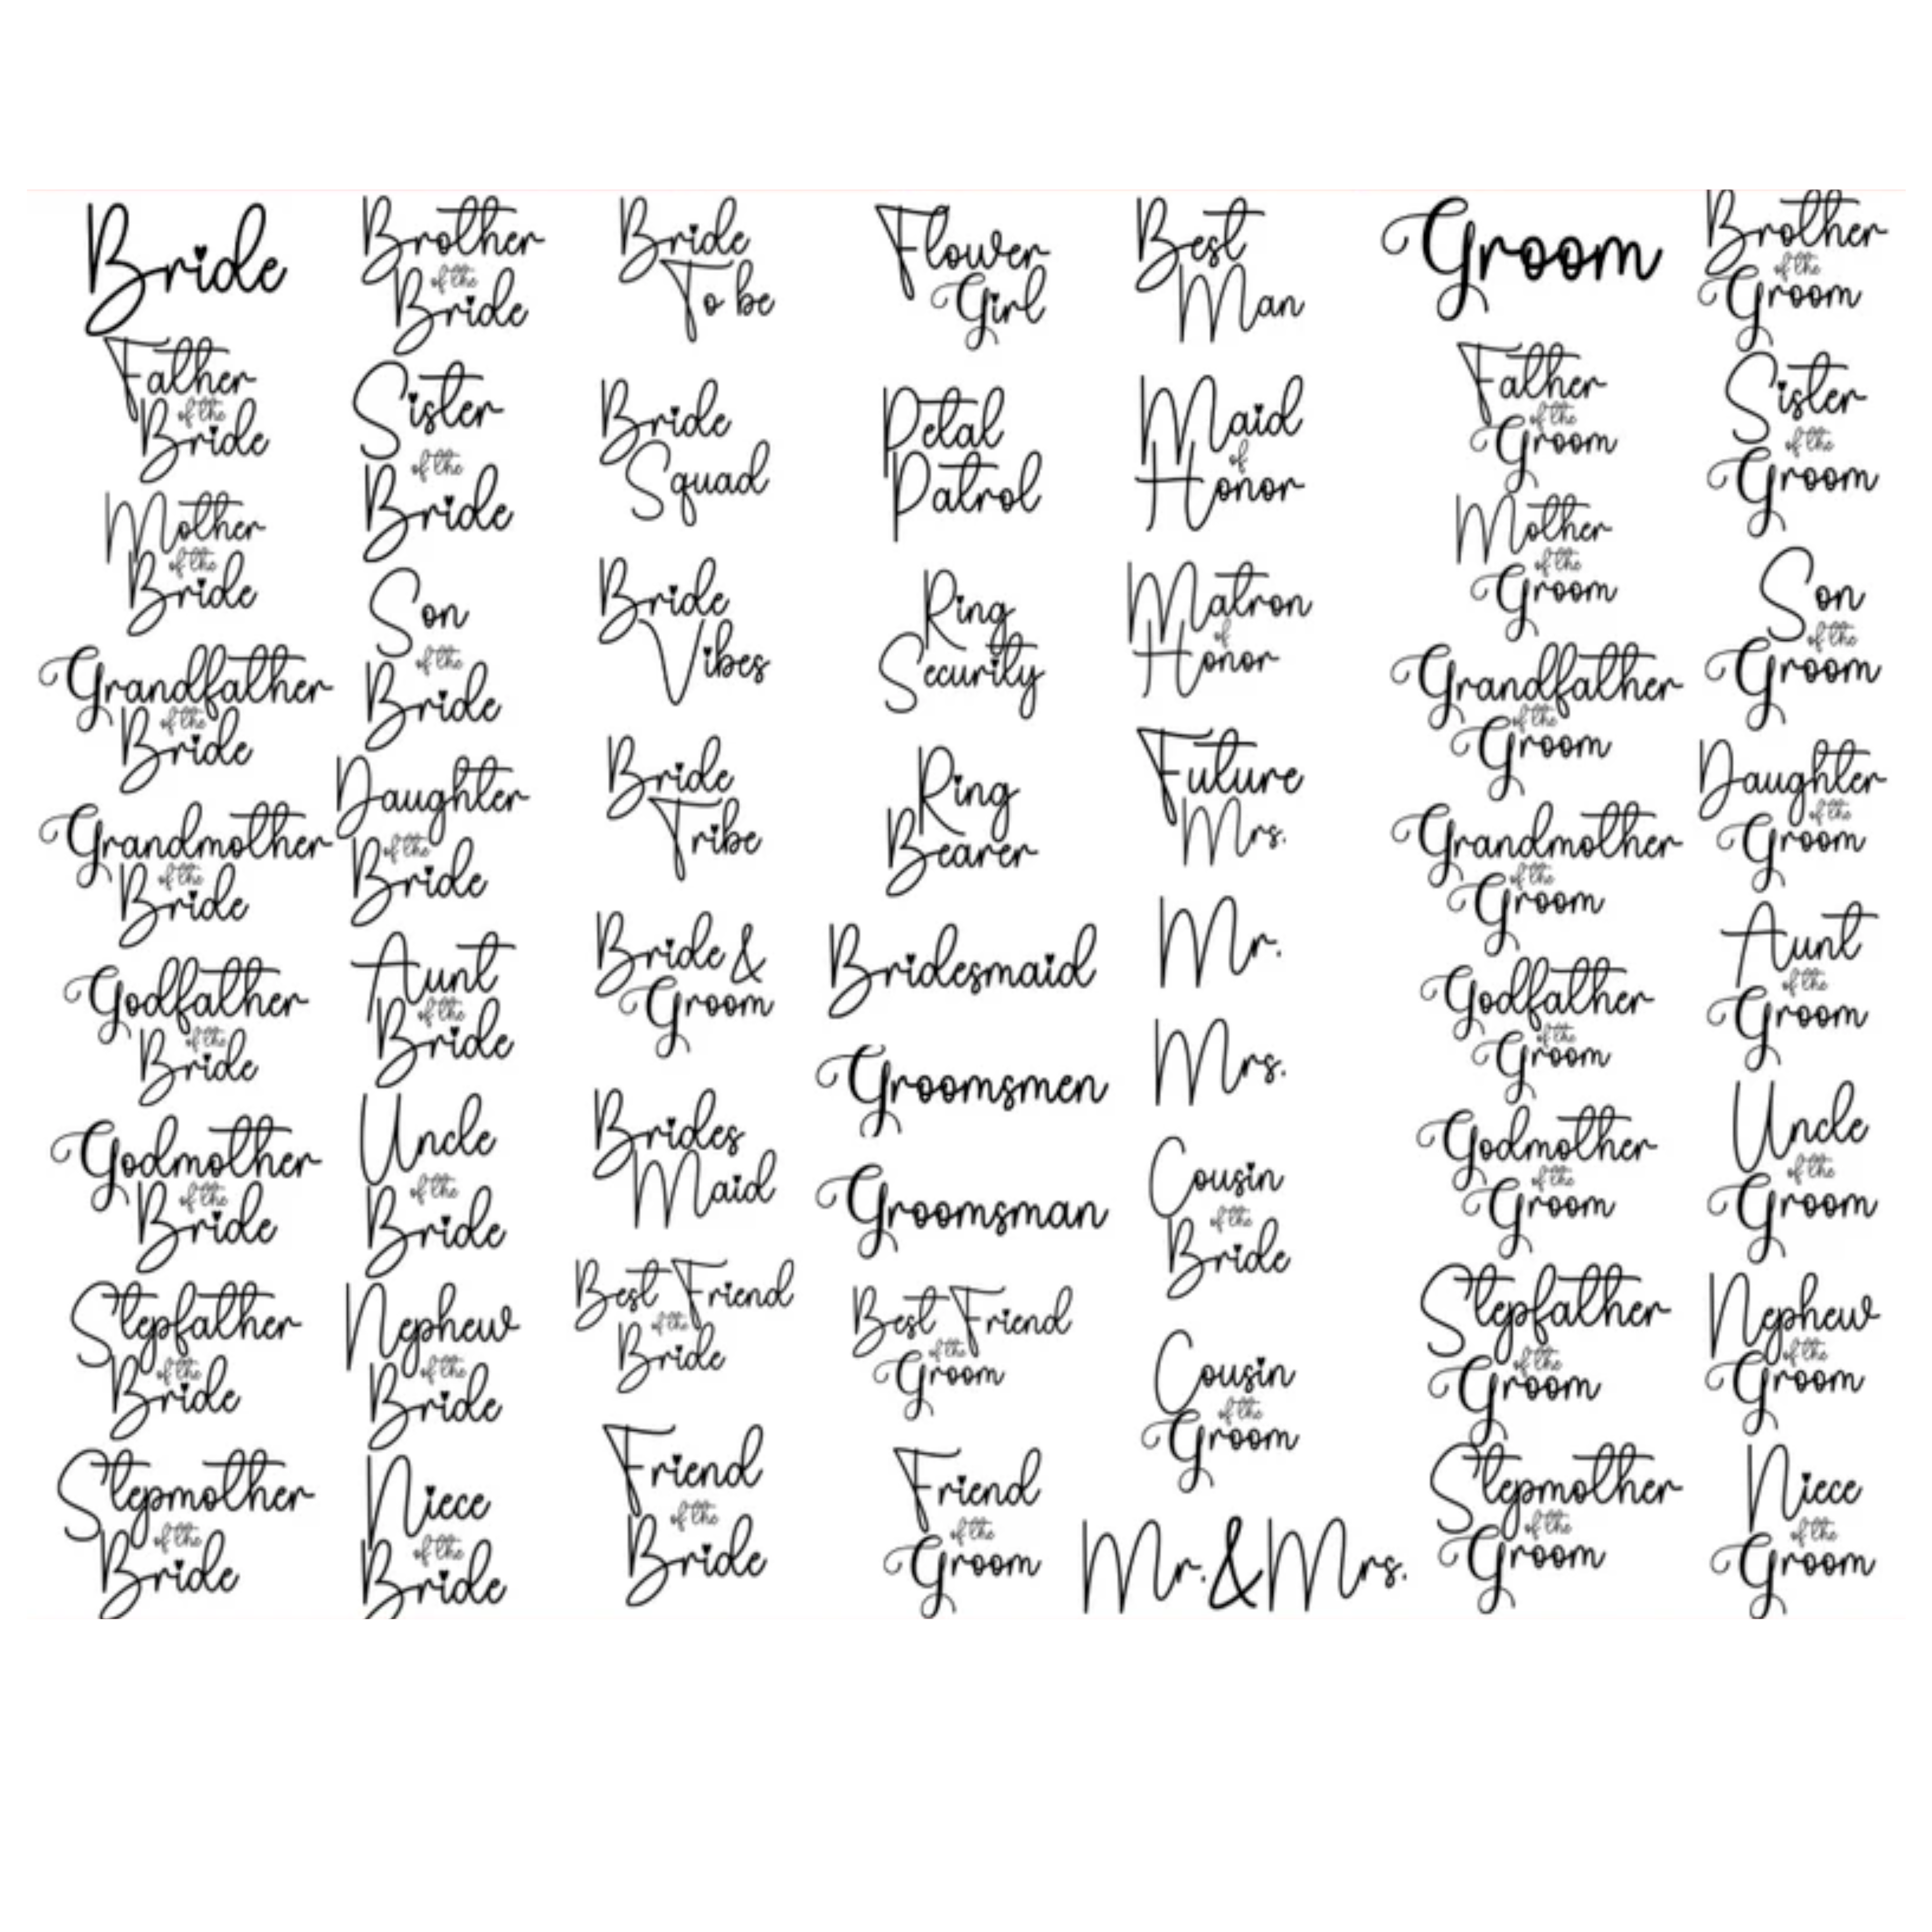 Bride
Father
of the
Bride
Mother
of the
Bride
Grandfather
of the
Bride
Grandmother
of the
Bride
Godfather
of the
Bride
Godmother
of the
Bride
Stepfather
of the
Bride
Stepmother
of the
Bride
Brother
of the
Bride
Sister
of the
Bride
Son
of the
Bride
Daughter
of the
Bride
Aunt
of the
Bride
Uncle
of the
Bride
Nephew
of the
Bride
Niece
of the
Bride
Bride
To be
Bride
Squad
Bride
Vibes
Bride
Tribe
Bride &
Groom
Brides
Maid
Best Friend
of the
Bride
Friend
of the
Bride
Flower
Girl
Petal
Patrol
Ring
Security
Ring
Bearer
Bridesmaid
Groomsmen
Groomsman
Best Friend
of the
Groom
Friend
of the
Groom
Best
Man
Maid
of
Honor
Matron
of
Honor
Future
Mrs.
Mr.
Mrs.
Cousin
of the
Bride
Cousin
of the
Groom
Mr.&Mrs.
Groom
Father
of the
Groom
Mother
of the
Groom
Grandfather
of the
Groom
Grandmother
of the
Groom
Godfather
of the
Groom
Godmother
of the
Groom
Stepfather
of the
Groom
Stepmother
of the
Groom
Brother
of the
Groom
Sister
of the
Groom
Son
of the
Groom
Daughter
of the
Groom
Aunt
of the
Groom
Uncle
of the
Groom
Nephew
of the
Groom
Niece
of the
Groom